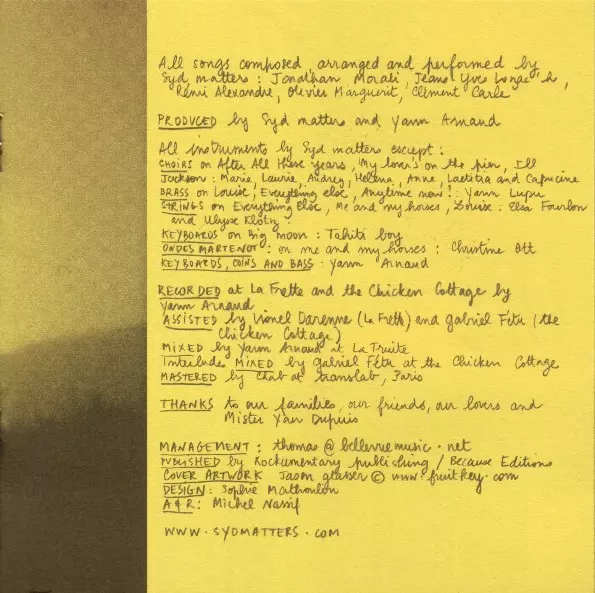 All songs composed, arranged and performed by
Syd matters : Jonathan Morali, Jean-Yves Lozac'h,
Rémi Alexandre, Olivier Marguerit, Clément Carle
PRODUCED by Syd matters and Yann Arnaud
All instruments by Syd matters except :
CHOIRS on After All these years, My lover's on the pier, Ill
Jackson : Marie, Laurie, Audrey, Helena, Anne, Laetitia and Capucine
BRASS on Louise, Everything else, Anytime now! : Yann Lupu
STRINGS on Everything Else, Me and my horses, Louise : Elsa Fourlon
and Ulysse Klotz.
KEYBOARDS on Big moon : Tahiti boy
ONDES MARTENOT : on me and my horses : Christine Ott
KEYBOARDS, COINS AND BASS : Yann Arnaud
RECORDED at La Frette and the Chicken Cottage by
Yann Arnaud
ASSISTED by Lionel Darenne (La Frette) and Gabriel Fétu (the
Chicken Cottage)
MIXED by Yann Arnaud at La Truite
Interludes MIXED by Gabriel Fétu at the Chicken Cottage
MASTERED by Chab at translab, Paris
THANKS to our families, our friends, our lovers and
Mister Yan Dupuis
MANAGEMENT : thomas @ bellevuemusic . net
PUBLISHED by Rockumentary publishing / Because Editions
COVER ARTWORK Jason glasser © www. fruitkey . com
DESIGN : Sophie Mathoulon
A&R : Michel Nassif
WWW . SYDMATTERS . COM